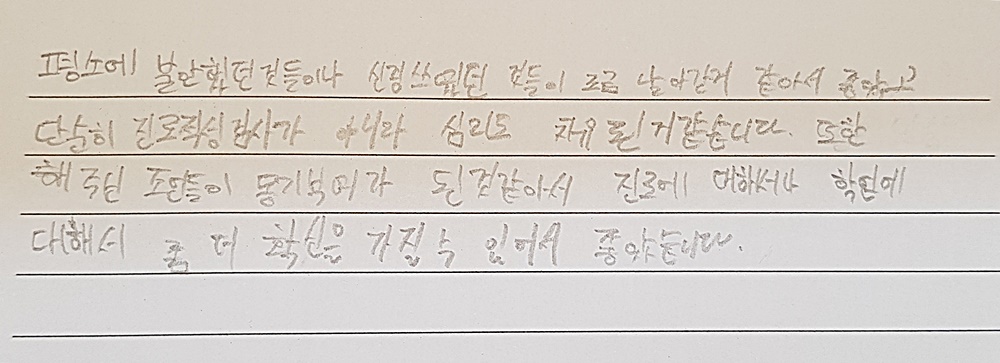 평소에 불안했던것들이나 신경쓰였던 것들이 조금 날아간게 같아서 좋았고
단순히 진로적성검사가 아니라 심리도 치유 된거같습니다. 또한
해주신 조언들이 동기부여가 된것같아서 진로에 대해서나 학업에
대해서 좀 더 확신을 가질 수 있어서 좋았습니다.